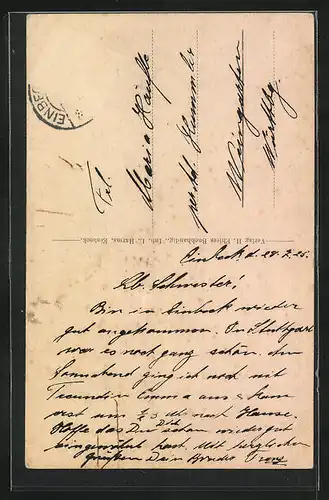 EINBEC
Frl.
Maria
Weingarten
Württbg.
Verlag H. Ehlers Buchhandlg., Inh. L. Harms, Einbeck.
Einbeck d. 28.7.25.
Lb. Schwester!
Bin in Einbek wieder
gut angekommen. In Stuttgart
war es noch ganz schön. Am
Sonnabend ging ich noch mit
Freundin Emma aus &
erst um Uhr nach Hause.
Hoffe das Du Dich schon wieder gut
eingewöhnt hast. Mit herzlichen
Grüßen Dein Bruder Franz